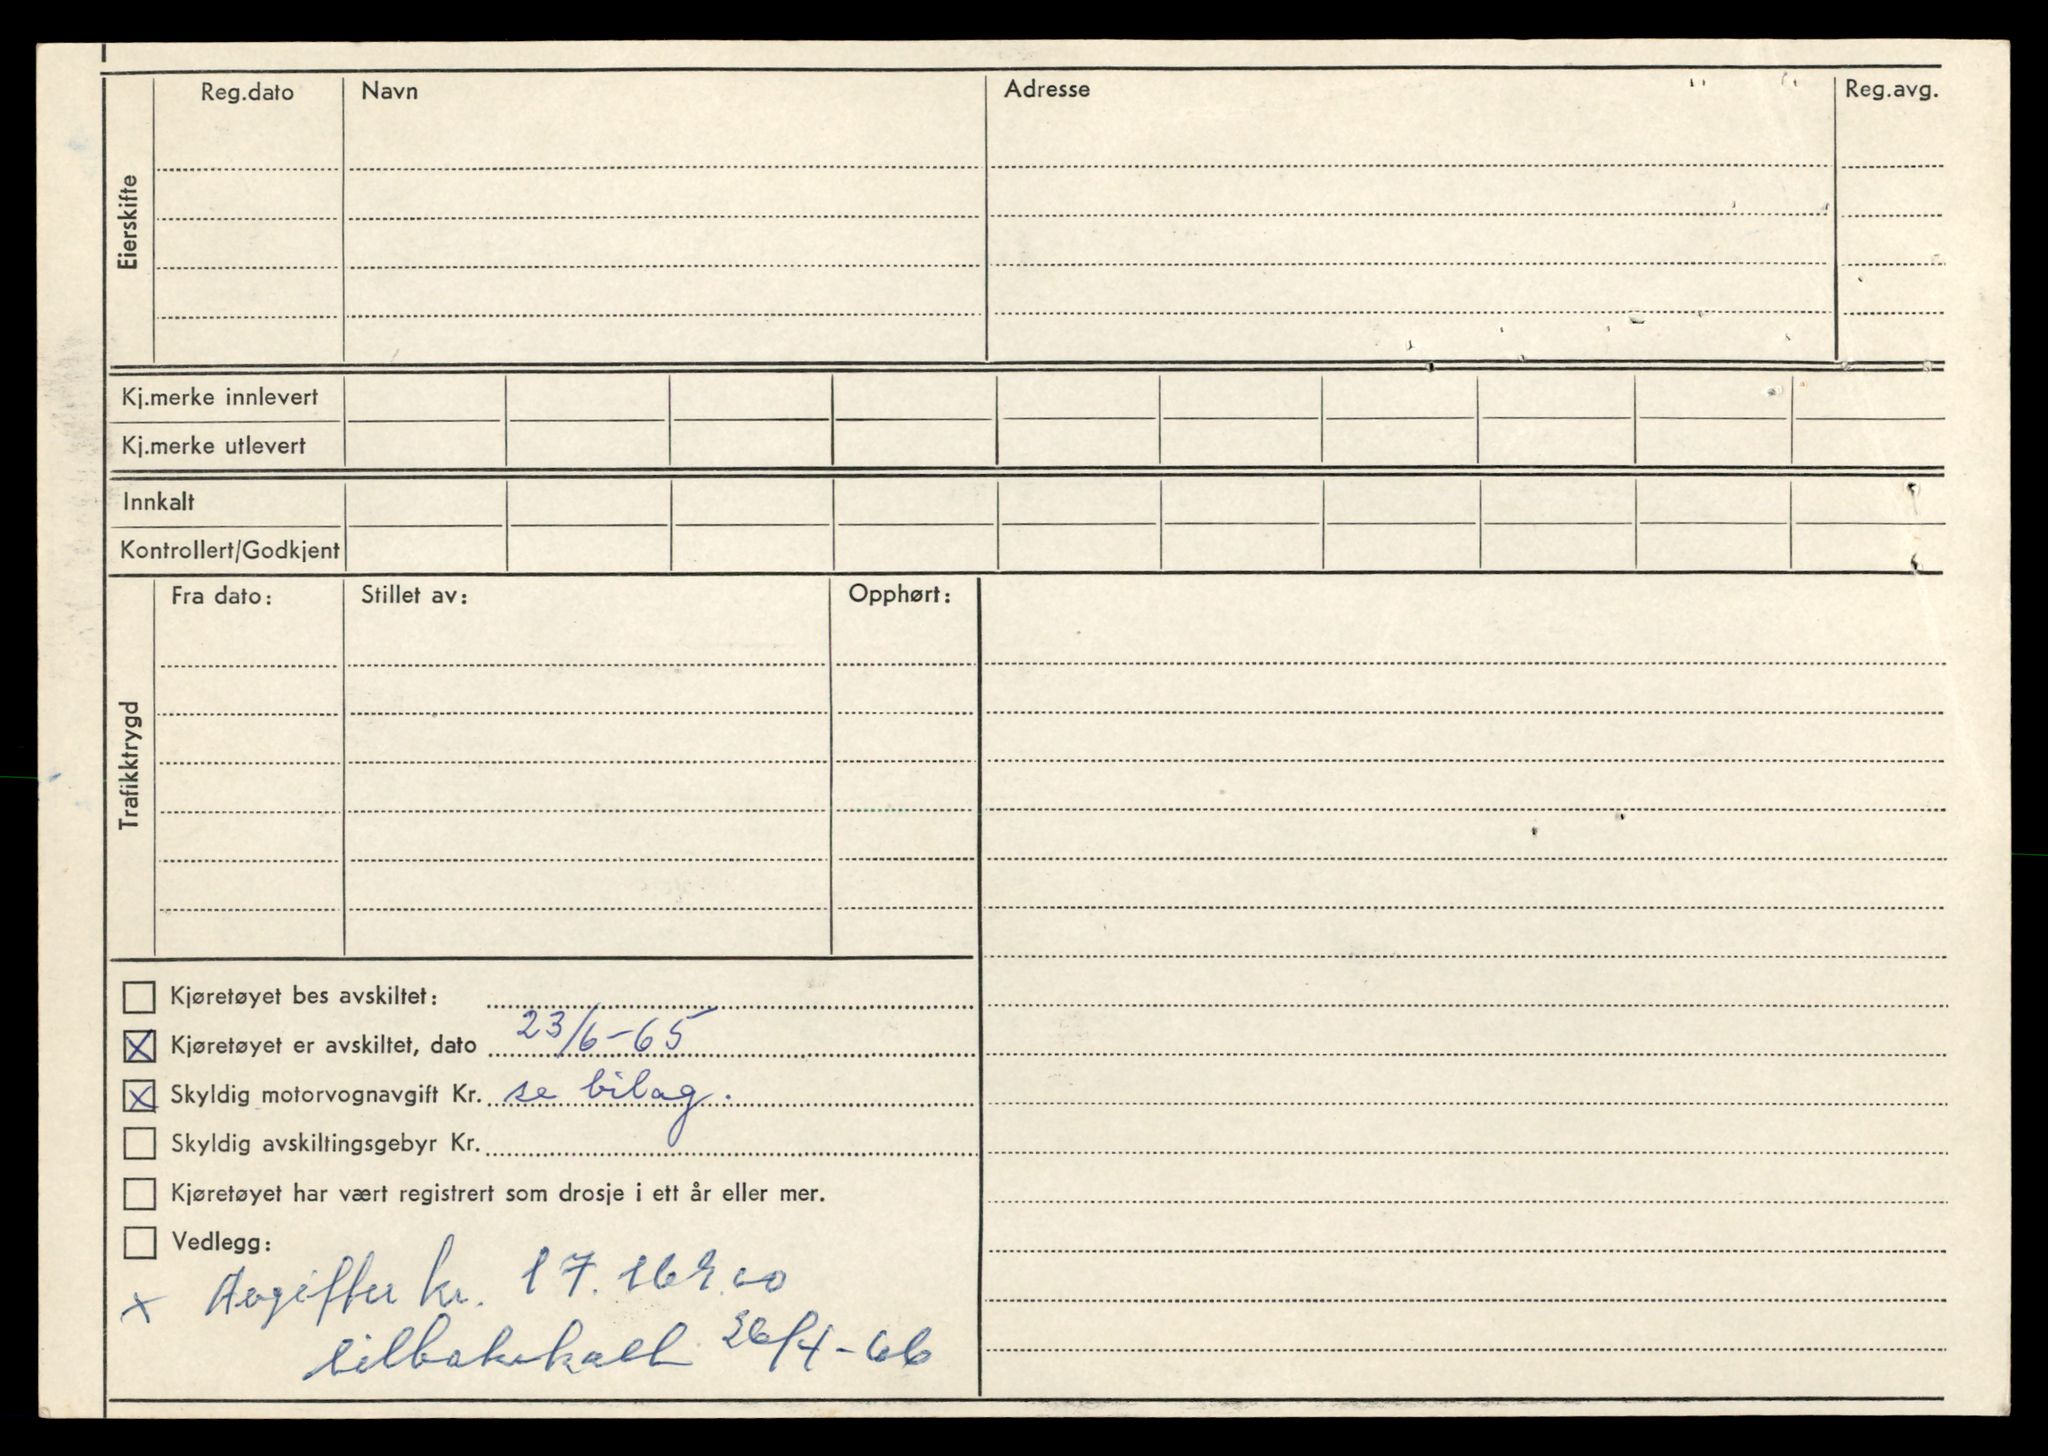 Reg.dato Navn Adresse Reg.avg.
Eierskifte
Kj.merke innlevert
Kj.merke utlevert
Innkalt
Kontrollert/Godkjent
Fra dato: Stillet av: Opphørt:
Trafikktrygd
Kjøretøyet bes avskiltet:
X Kjøretøyet er avskiltet, dato 23/6-65
X Skyldig motorvognavgift Kr. se bilag.
Skyldig avskiltingsgebyr Kr.
Kjøretøyet har vært registrert som drosje i ett år eller mer.
Vedlegg:
x Avgifter kr.
tilbakekalt 26/4-66